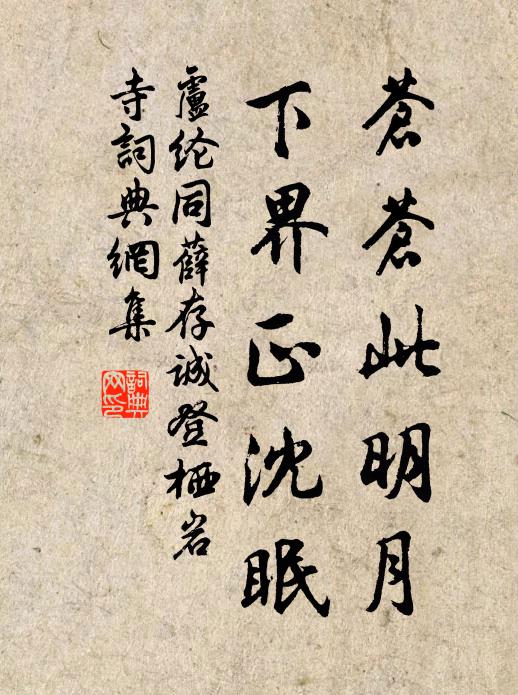 蒼蒼此明月
下界正沈眠
盧纶同薛存誠登栖岩
寺詞典網集
詞典
网印